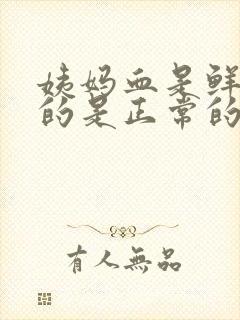 姨妈血是鲜
的是正常的
有人無品